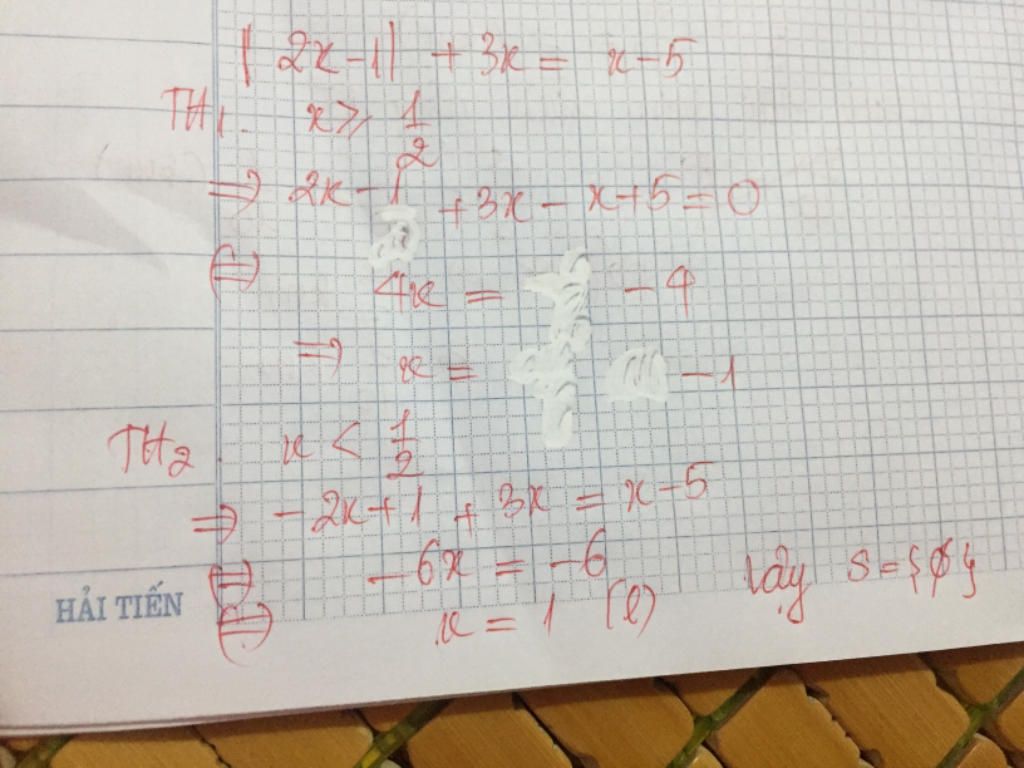 |2x-1| + 3x = x-5
TH1. x ⩾ 1/2
=> 2x-1 + 3x - x+5 = 0
(=) 4x = -4
=> x = -1
TH2. x < 1/2
=> -2x+1 + 3x = x-5
(=) -6x = -6
(=) x = 1 (l) Vậy S = {∅}
HẢI TIẾN